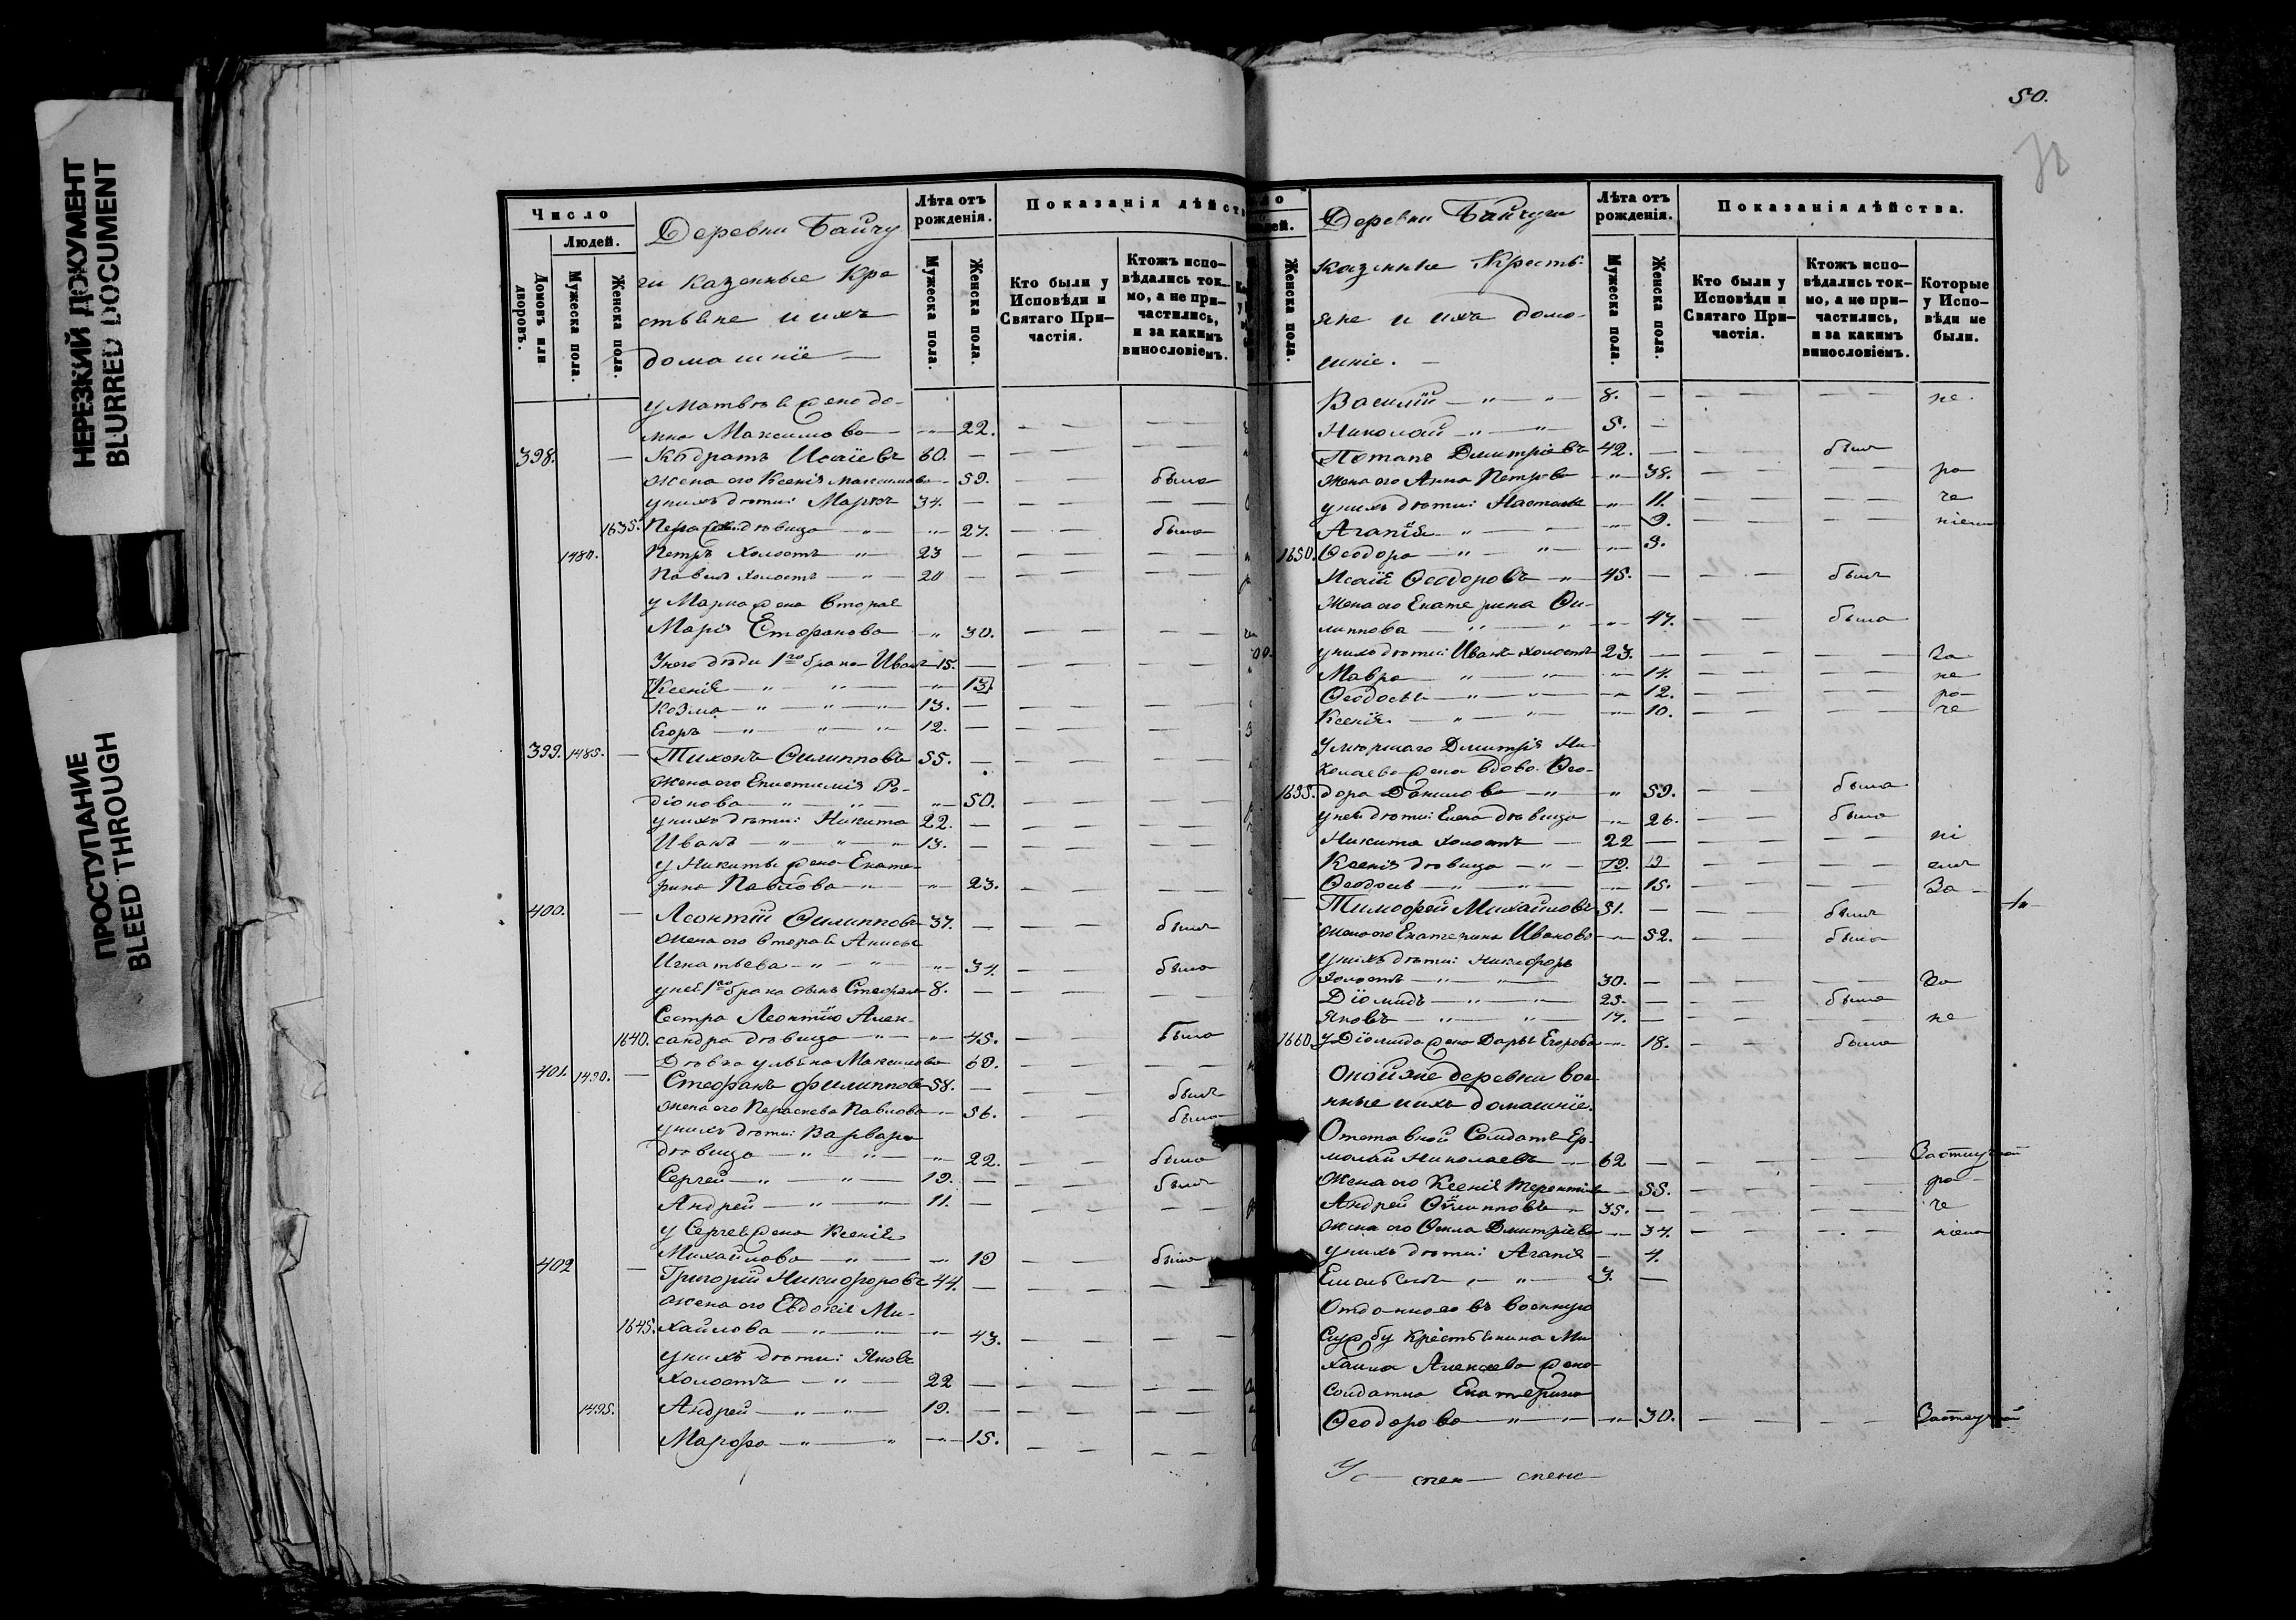 НЕРЕЗКИЙ ДОКУМЕНТ
BLURRED DOCUMENT
ПРОСТУПАНИЕ
BLEED THROUGH
Число
Людей.
Домовъ или дворовъ.
Мужеска пола.
Женска пола.
Деревни Байчу
ги казенные Кре
стьяне и ихъ
домашніе —
Лѣта отъ рожденія.
Мужеска пола.
Женска пола.
Показанія дѣйст
Кто были у Исповѣди и Святаго При-частія.
Ктожъ испо-вѣдались ток-мо, а не при-частились, и за какимъ винословіемъ.
у Матвѣя жена До-
мна Максимова 22.
398. — Кодратъ Исаіевъ 60. —
жена его Ксенія Максимова 59. была
у нихъ дѣти: Марко 34. —
1635. дѣвица 27. была
1480. Петръ холостъ 23 —
Павелъ холостъ 20 —
у Марка жена вторая
Марія Стефанова 30.
У него дѣти 1го брака Иванъ 15. —
Ксенія 13.
Козма 13. —
Егоръ 12. —
399. 1485. — Тихонъ Филипповъ 55. —
жена его Епистимія Ро-
діонова 50.
у нихъ дѣти: Никита 22. —
Иванъ 13. —
у Никиты жена Екате-
рина Павлова 23.
400. — Леонтій Филипповъ 37. — былъ
жена его вторая Анисья
Игнатьева 34. была
у нея 1го брака сынъ Стефанъ 8. —
Сестра Леонтію Алек-
1640. сандра дѣвица 45. была
Ульяна Максимова 60.
401. 1490. — Стефанъ Филипповъ 58. — былъ
жена его Параскева Павлова 56. была
у нихъ дѣти: Варвара
дѣвица 22. была
Сергей 19. — былъ
Андрей 11. —
у Сергея жена Ксенія
Михайлова 19 была
402 — Григорій Никифоровъ 44. —
жена его Евдокія Ми-
1645. хайлова 43.
у нихъ дѣти: Яковъ
холостъ 22 —
1495. Андрей 19. —
Марфа 15.
50.
Женска пола.
Деревни Байчуги
казенные Кресть-
яне и ихъ дома-
шніе. —
Лѣта отъ рожденія.
Мужеска пола.
Женска пола.
Показанія дѣйства.
Кто были у Исповѣди и Святаго При-частія.
Ктожъ испо-вѣдались ток-мо, а не при-частились, и за какимъ винословіемъ.
Которые у Испо-вѣди не были.
Василій 8. — не
Николай 5. —
Потапъ Дмитріевъ 42. — былъ
жена его Анна Петрова 38. ра
у нихъ дѣти: Настасья 11. че
Агапія 9. ніемъ
1650. Ѳеодора 9.
Исаій Ѳеодоровъ 45. — былъ
жена его Екатерина Фи-
липпова 47. была
у нихъ дѣти: Иванъ холостъ 23. — За
Мавра 14. не
Ѳеодосья 12. ра-
Ксенія 10. че
Умершаго Дмитрія Ни-
колаева жена вдова Ѳео-
1655. дора Данилова 59. была
у нея дѣти: Елена дѣвица 26. была
Никита холостъ 22 — ні
Ксенія дѣвица 19. емъ
Ѳеодосья 15. За
Тимофей Михайловъ 51. — былъ
жена его Екатерина Иванова 52. была
у нихъ дѣти: Никифоръ
холостъ 30. — За
Діомидъ 25. — былъ
Яковъ 14. — не
1660. У Діомида жена Дарья Егорова 18. была
Оной же деревни вое-
нные и ихъ домашніе.
Отставной Солдатъ Ер-
молай Николаевъ 62 — За отлуч
жена его Ксенія Терентіева 55. ра-
Андрей Филипповъ 35. — че
жена его Ѳекла Дмитріева 34. ніемъ
у нихъ дѣти: Агапія 4.
3. —
Отданнаго въ военную
Службу крестьянина Ми-
хаила Алексѣева жена
солдатка Екатерина
Ѳеодорова 30. За отлуч